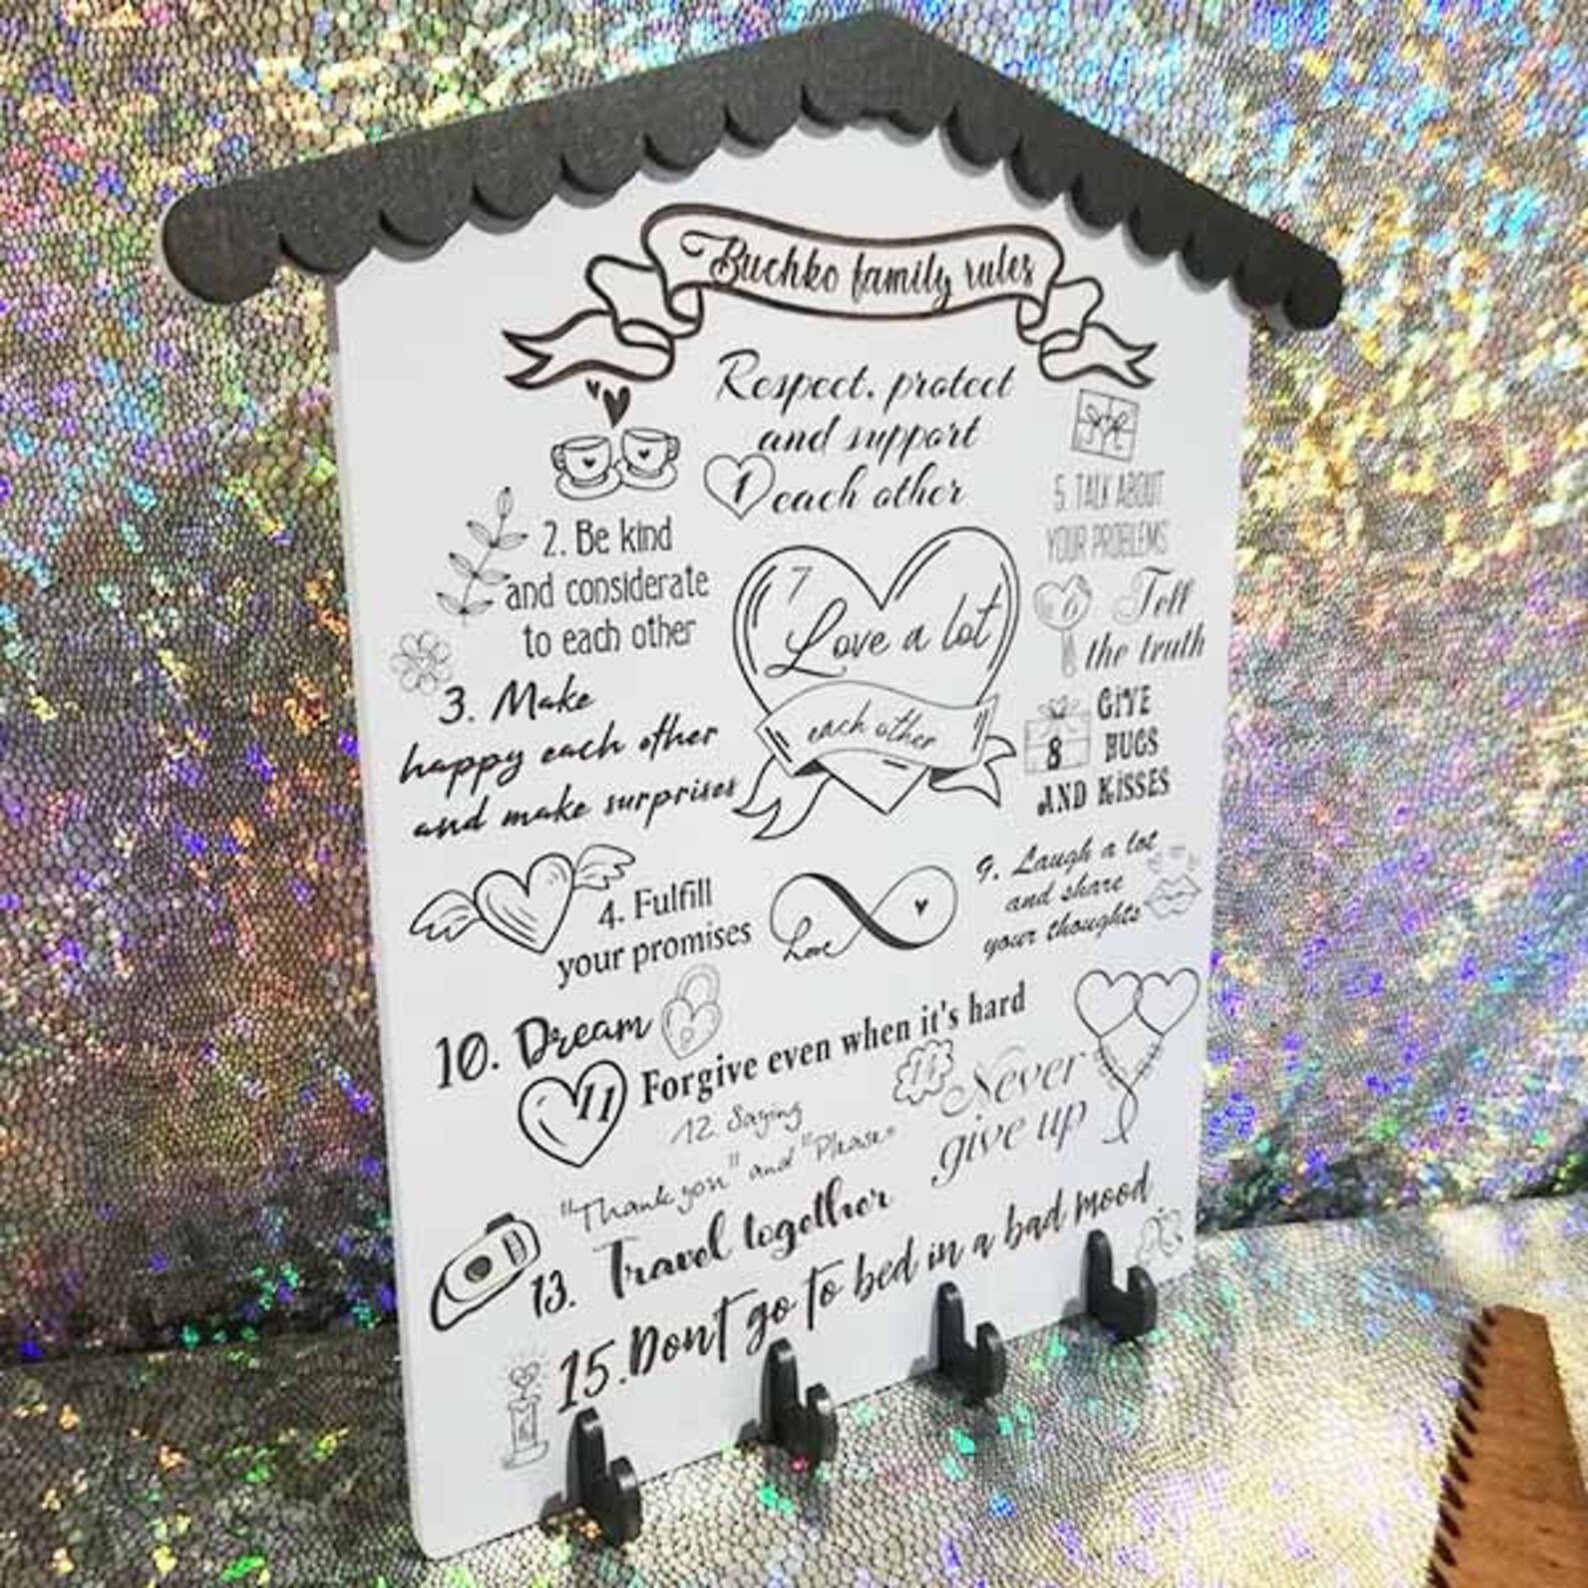 Buchko family rules
Respect, protect
and support
1 each other
2. Be kind
and considerate
to each other
3. Make
happy each other
and make surprises
4. Fulfill
your promises
5. TALK ABOUT
YOUR PROBLEMS
6 Tell
the truth
7
Love a lot
each other
8 GIVE
HUGS
AND KISSES
Love
9. Laugh a lot
and share
your thoughts
10. Dream
11 Forgive even when it's hard
12. Saying
"Thank you" and "Please"
13. Travel together
14 Never
give up
15. Don't go to bed in a bad mood